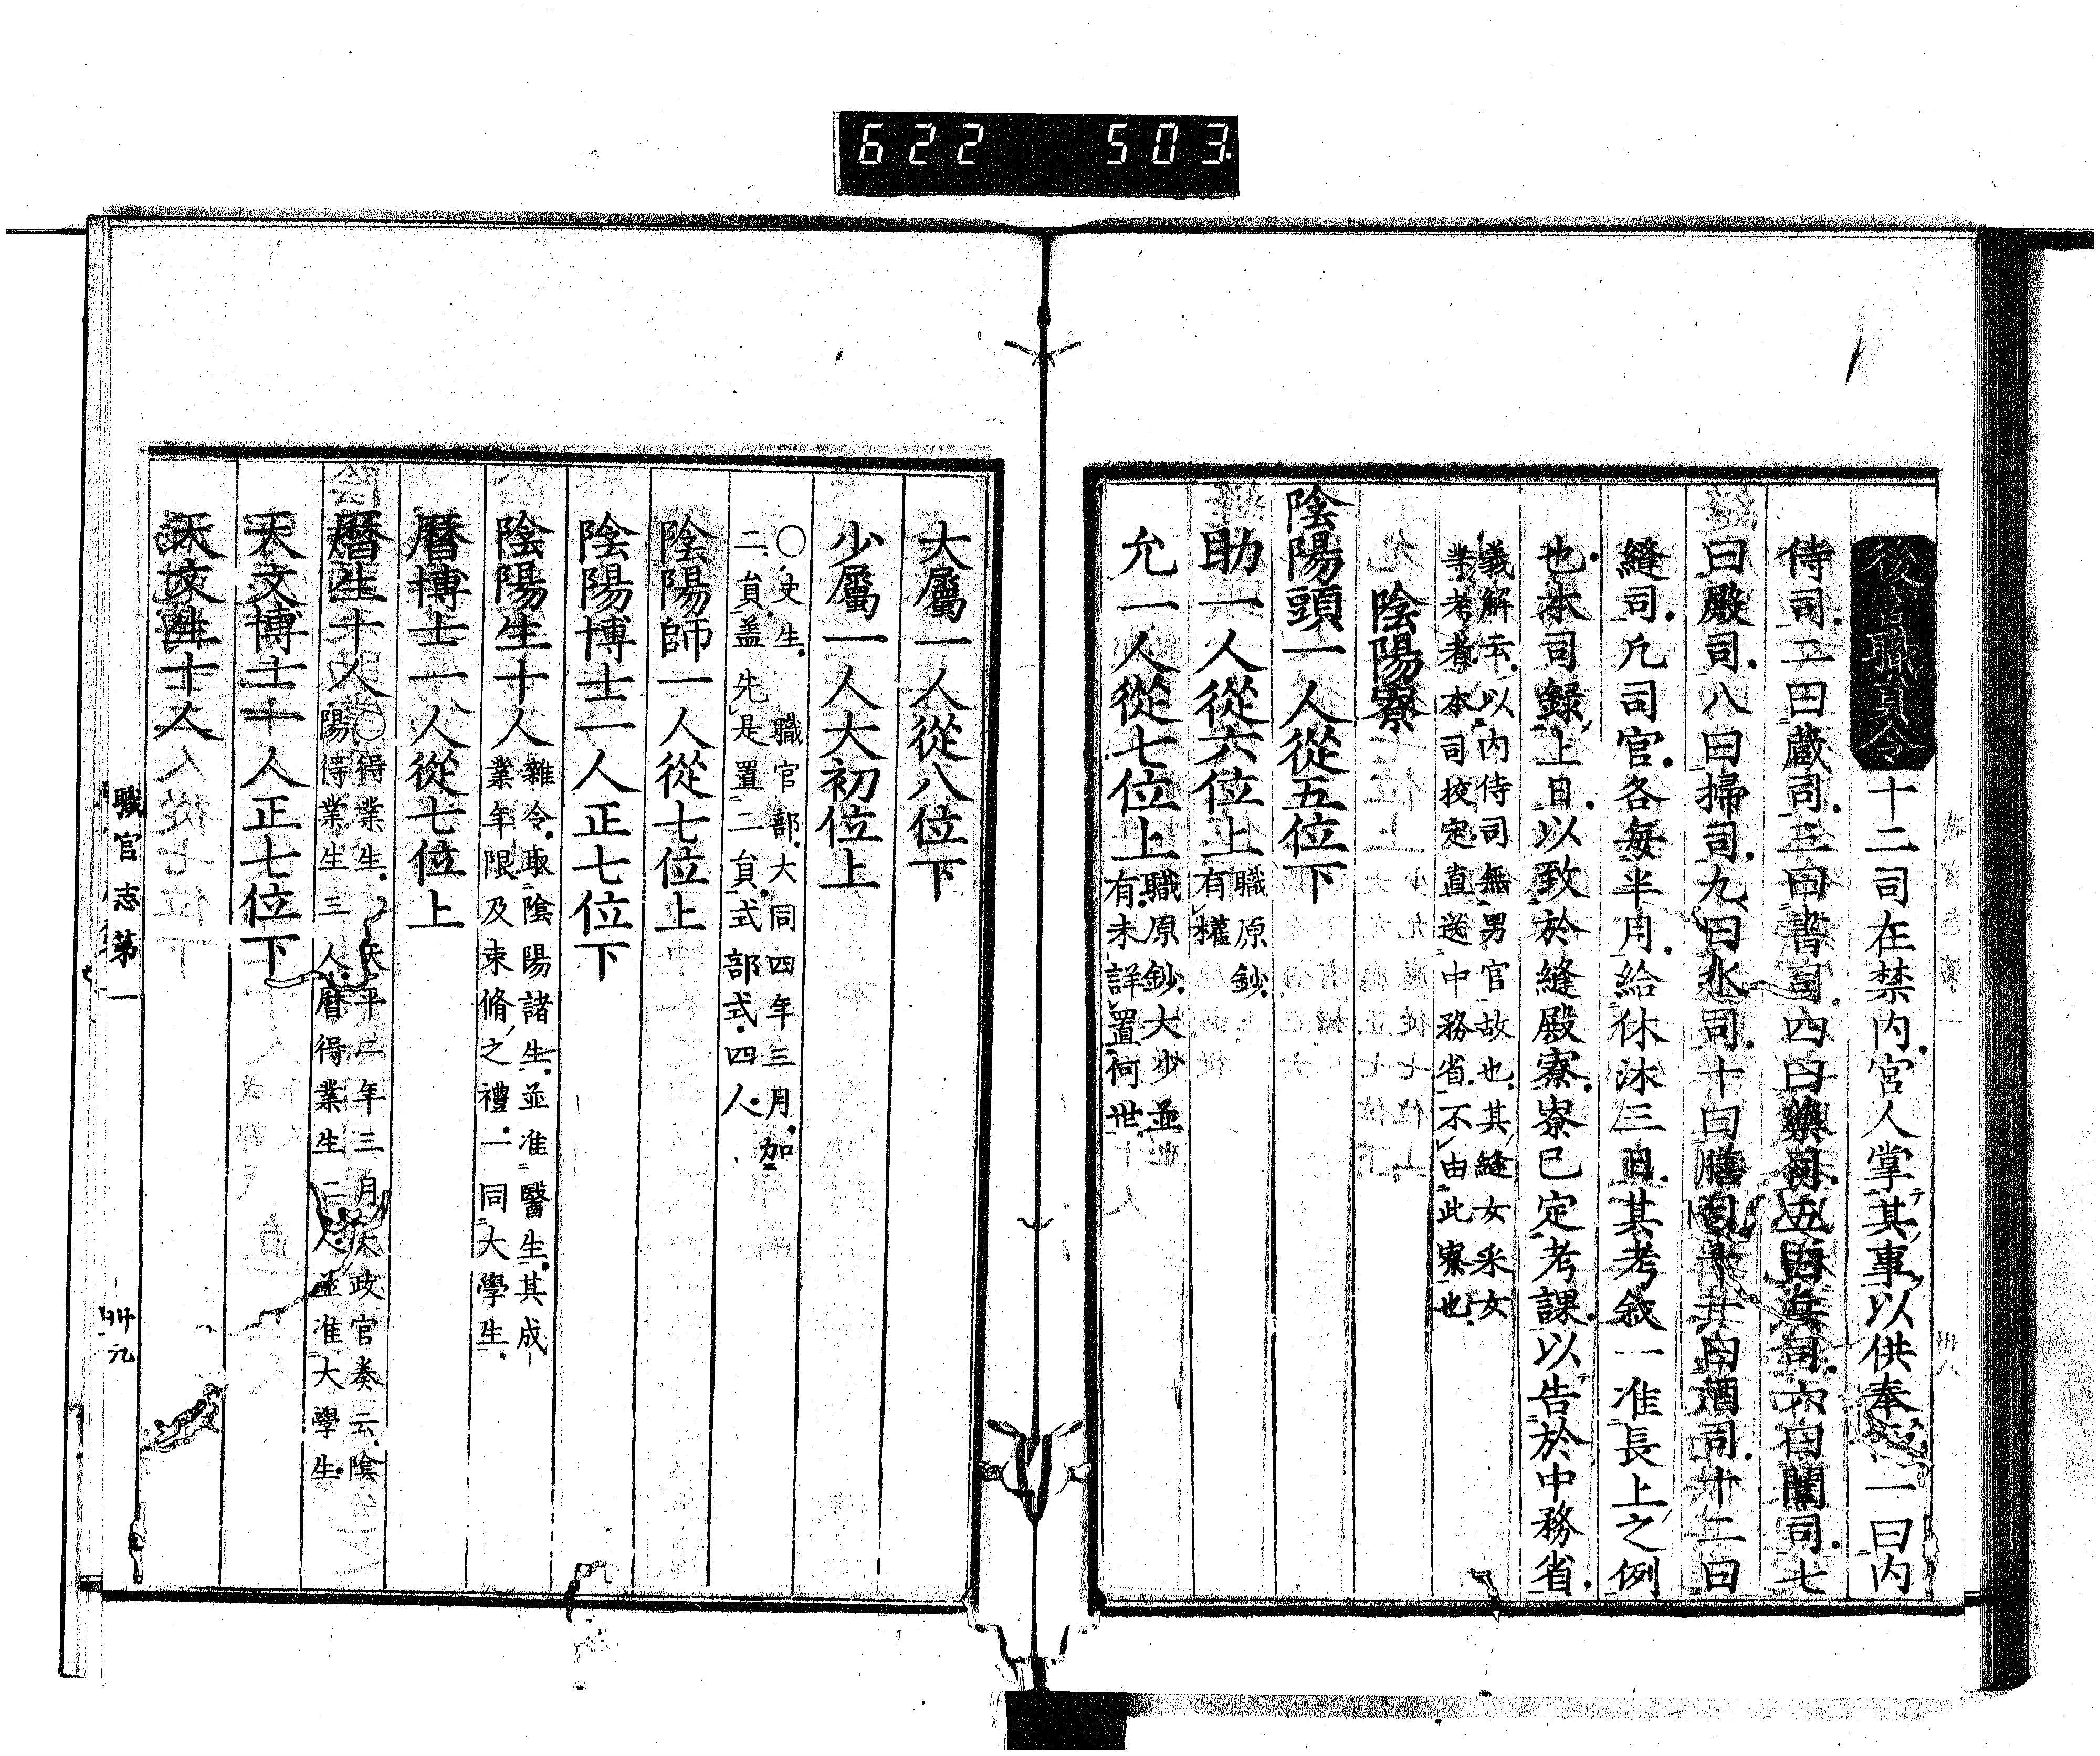 622 503
後宮職員令十二司在禁内宮人掌其事以供奉一曰内
侍司二曰蔵司三曰書司四曰藥司五曰兵司六曰闈司七
曰殿司八曰掃司九曰水司十曰膳司十一曰酒司十二曰
縫司凡司官各毎半月給休沐三日其考敘一准長上之例
也本司録上日以致於縫殿寮寮已定考課以告於中務省
義解云以内侍司無男官故也其縫女采女
業考者本司挍定直送中務省不由此寮也
陰陽寮
陰陽頭一人從五位下
助一人從六位上職原鈔
有權
允一人從七位上職原鈔大少並
有未詳置何世
大屬一人從八位下
少屬一人大初位上
〇史生職官部大同四年三月加
二員盖先是置二員式部式四人
陰陽師一人從七位上
陰陽博士一人正七位下
陰陽生十人雜令取陰陽諸生並准醫生其成
業年限及束脩之禮一同大學生
曆博士一人從七位上
曆生十人〇得業生天平二年三月太政官奏云陰
陽得業生三人曆得業生二人並准大學生
天文博士一人正七位下
天文生十人
職官志第一
卅九